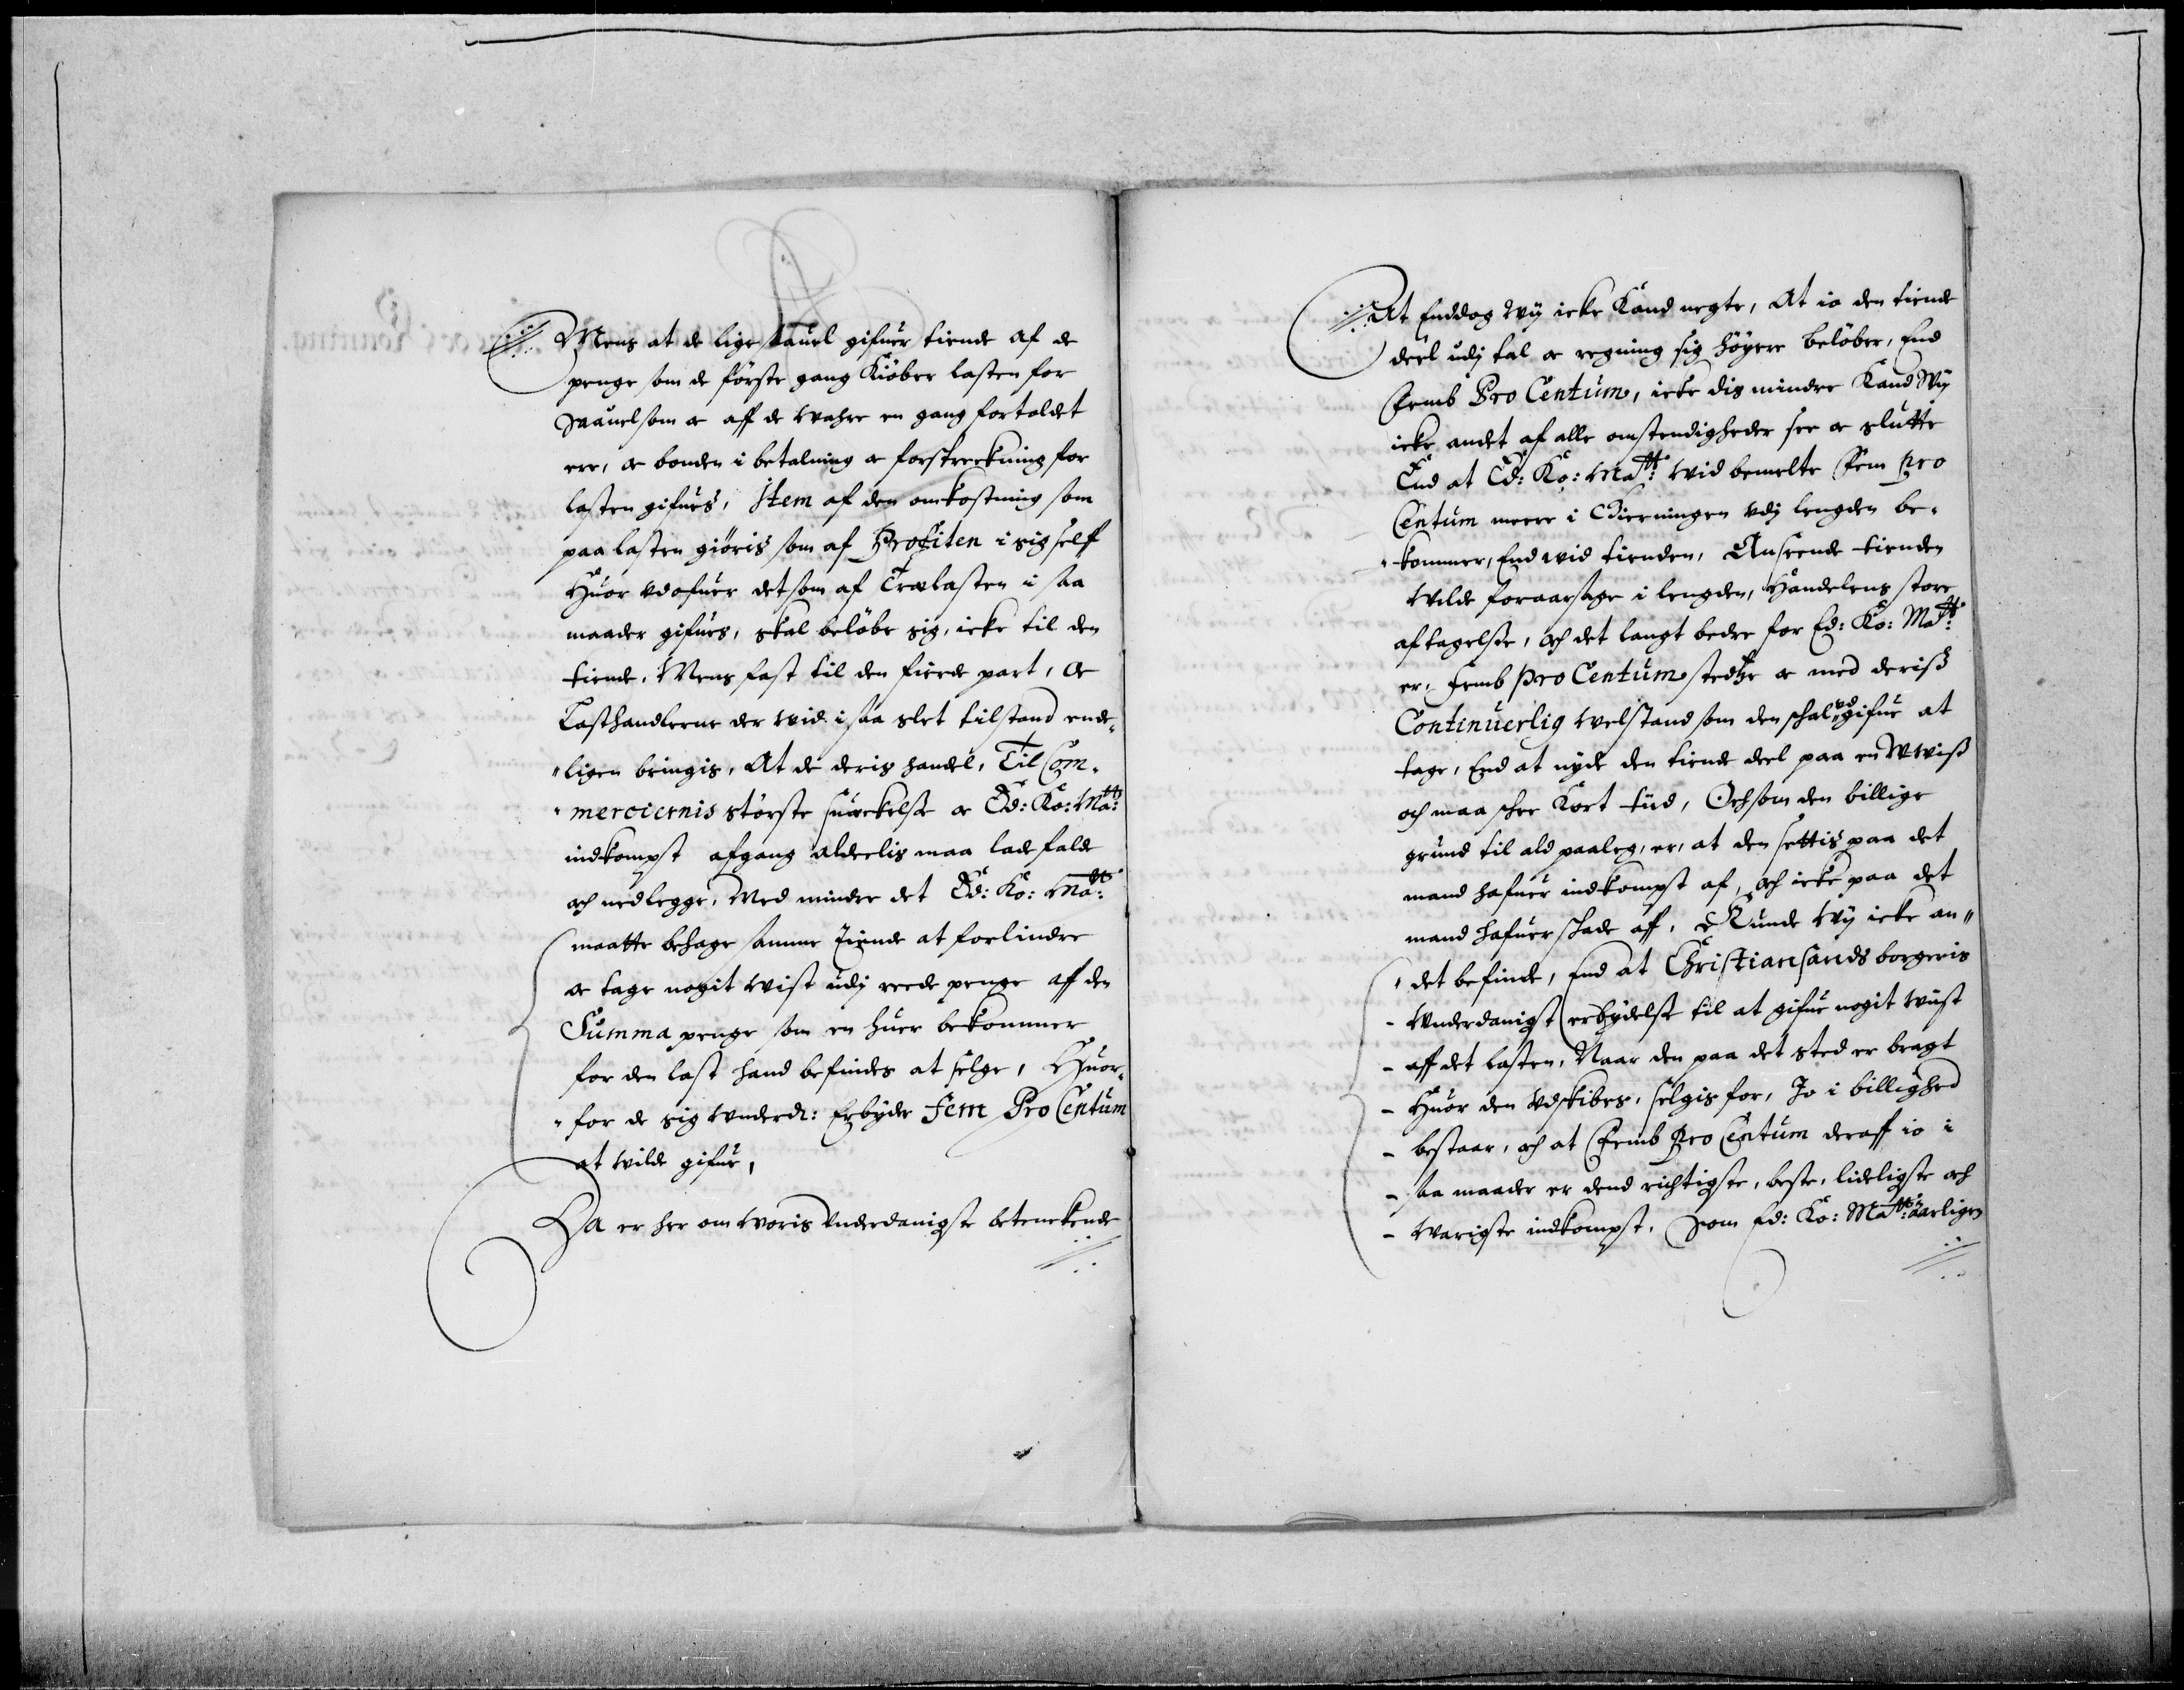 Mens at de lige saauel gifuer tiende af de
penge som de første gang Kiøber lasten for
saauelsom oc aff de wahre en gang fortoldet
ere, oc bonden i betalning oc forstreckning for
lasten gifues, Item af den omkostning som
paa lasten giøris som af Profiten i sig self
Huor udofuer det som af Trælasten i saa
maader gifues, skal beløbe sig, icke til den
tiende, Mens fast til den fierde part, oc
Lasthandlerne der wid i saa slet tilstand ende„
„ligen bringis, At de deris handel, Til Com„
„merciernis største suæckelse oc Ed: Ko: Matts:
indkompst afgang alderlis maa lade falde
och nedlegge, Med mindre det Ed: Ko: Matt:
maatte behage samme Tiende at forlindre
oc tage nogit wist udj reede penge aff den
Summa penge som en huer bekommer
for den last hand befindes at selge, Huor„
„for de sig underd: Erbyder Fem Pro Centum
at wilde gifue,
Da er her om woris underdanigste betenckende
At Enddog wij icke Kand negte, At io den tiende
deel udj tal oc regning sig høyere beløber, End
Femb Pro Centum, icke dis mindre Kand Wij
icke andet af alle omstendigheder see oc slutte
End at Ed: Ko: Matt: wid bemelte Fem pro
Centum meere i Gierningen udj lengden be„
„kommer, End wid tienden, Anseende tienden
wilde foraarsage i lengden, Handelens store
aftagelse, och det langt bedre for Ed: Ko: Matt:
er, Femb pro Centum stedtze oc med deriss
Continuerlig welstand som den schal udgifue at
tage, End at nyde den tiende deel paa en Wwiss
och maa schee Kort tiid, Och som den billige
grund til ald paaleg, er, at den settis paa det
mand hafuer indkompst af, och icke paa det
mand hafuer skade aff, Kunde wij icke an„
„det befinde, End at Christiansands borgeris
underdanigst erbydelse til at gifue nogit wist
aff det lasten, Naar den paa det sted er bragt
Huor den udskibes, selgis for, Jo i billighed
bestaar, och at Femb Pro Centum deraff io i
saa maader er dend richtigste, beste, lideligste och
warigste indkompst, som Ed: Ko: Matt: aarligen